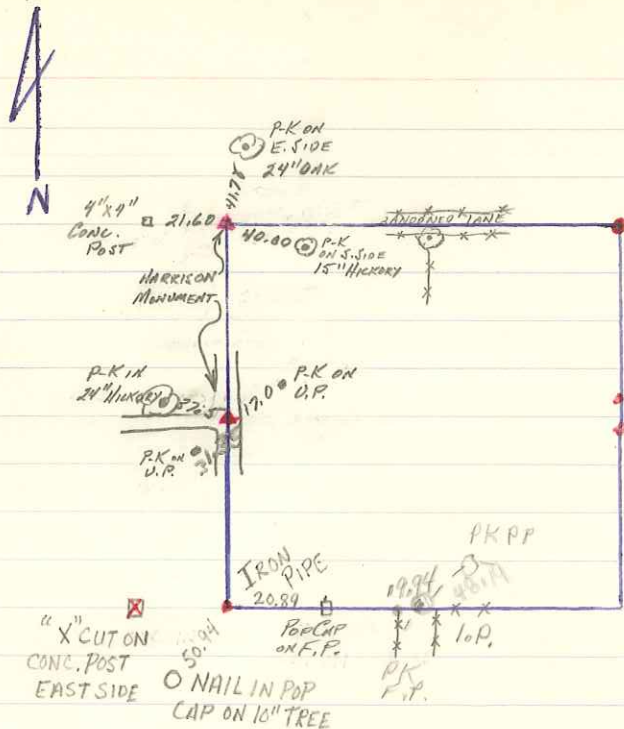 N
P-K ON
E. SIDE
24" OAK
41.78
4"X4"
CONC.
POST
21.60
40.00
P-K
ON S. SIDE
15" HICKORY
LANE
HARRISON
MONUMENT
P-K IN
24" HICKORY
17.0
P-K ON
U.P.
P-K ON
U.P.
31
IRON
PIPE
20.89
POP CAP
ON F.P.
19.94
PK
F.P.
PK PP
I.P.
"X" CUT ON
CONC. POST
EAST SIDE
50.94
NAIL IN POP
CAP ON 10" TREE